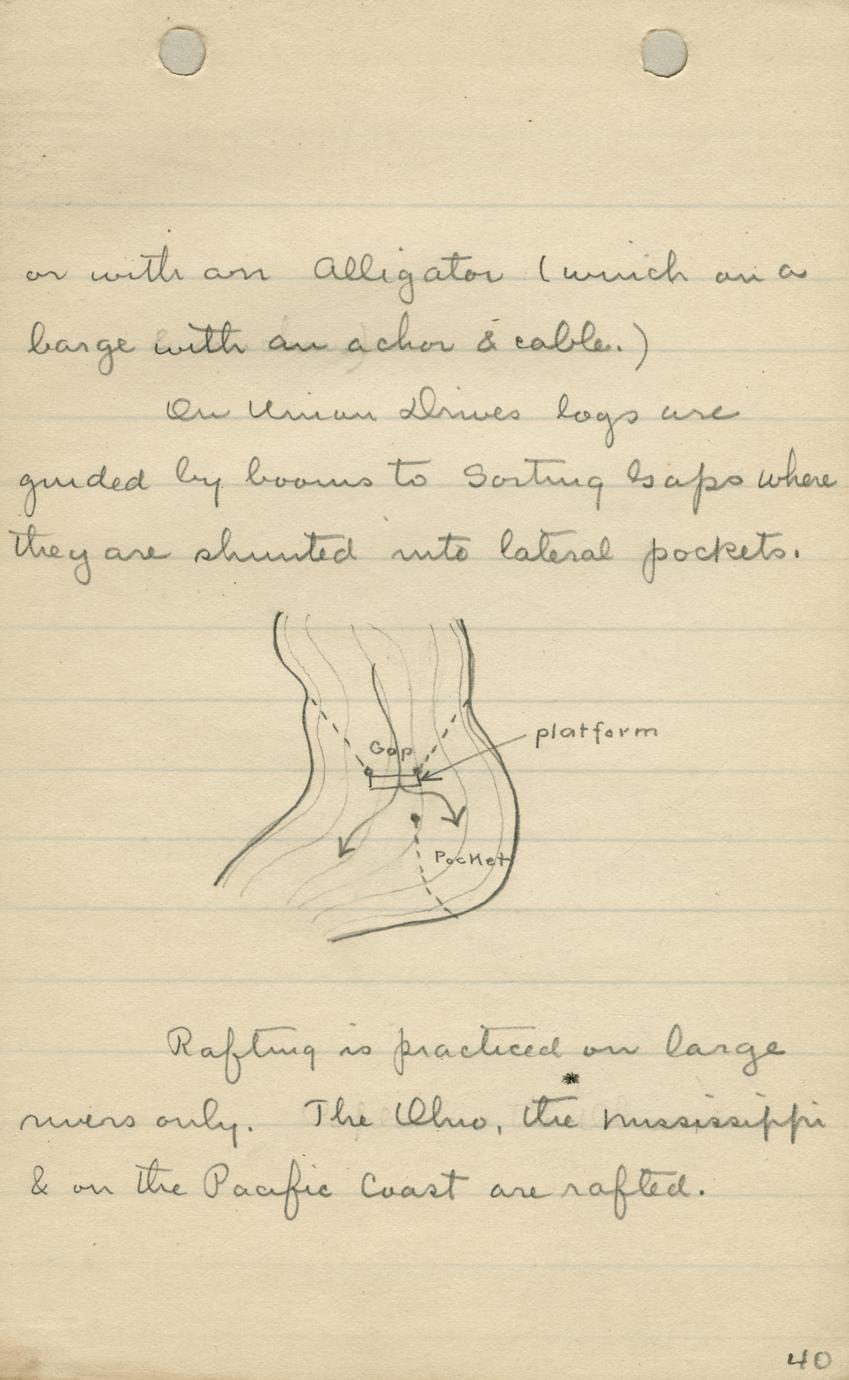 or with an Alligator (winch on a
barge with an achor & cable.)
On Union Drives logs are
guided by booms to Sorting Gaps where
they are shunted into lateral pockets.
platform
Gap
Pocket
Rafting is practiced on large
rivers only. The Ohio, the Mississippi
& on the Pacific Coast are rafted.
40